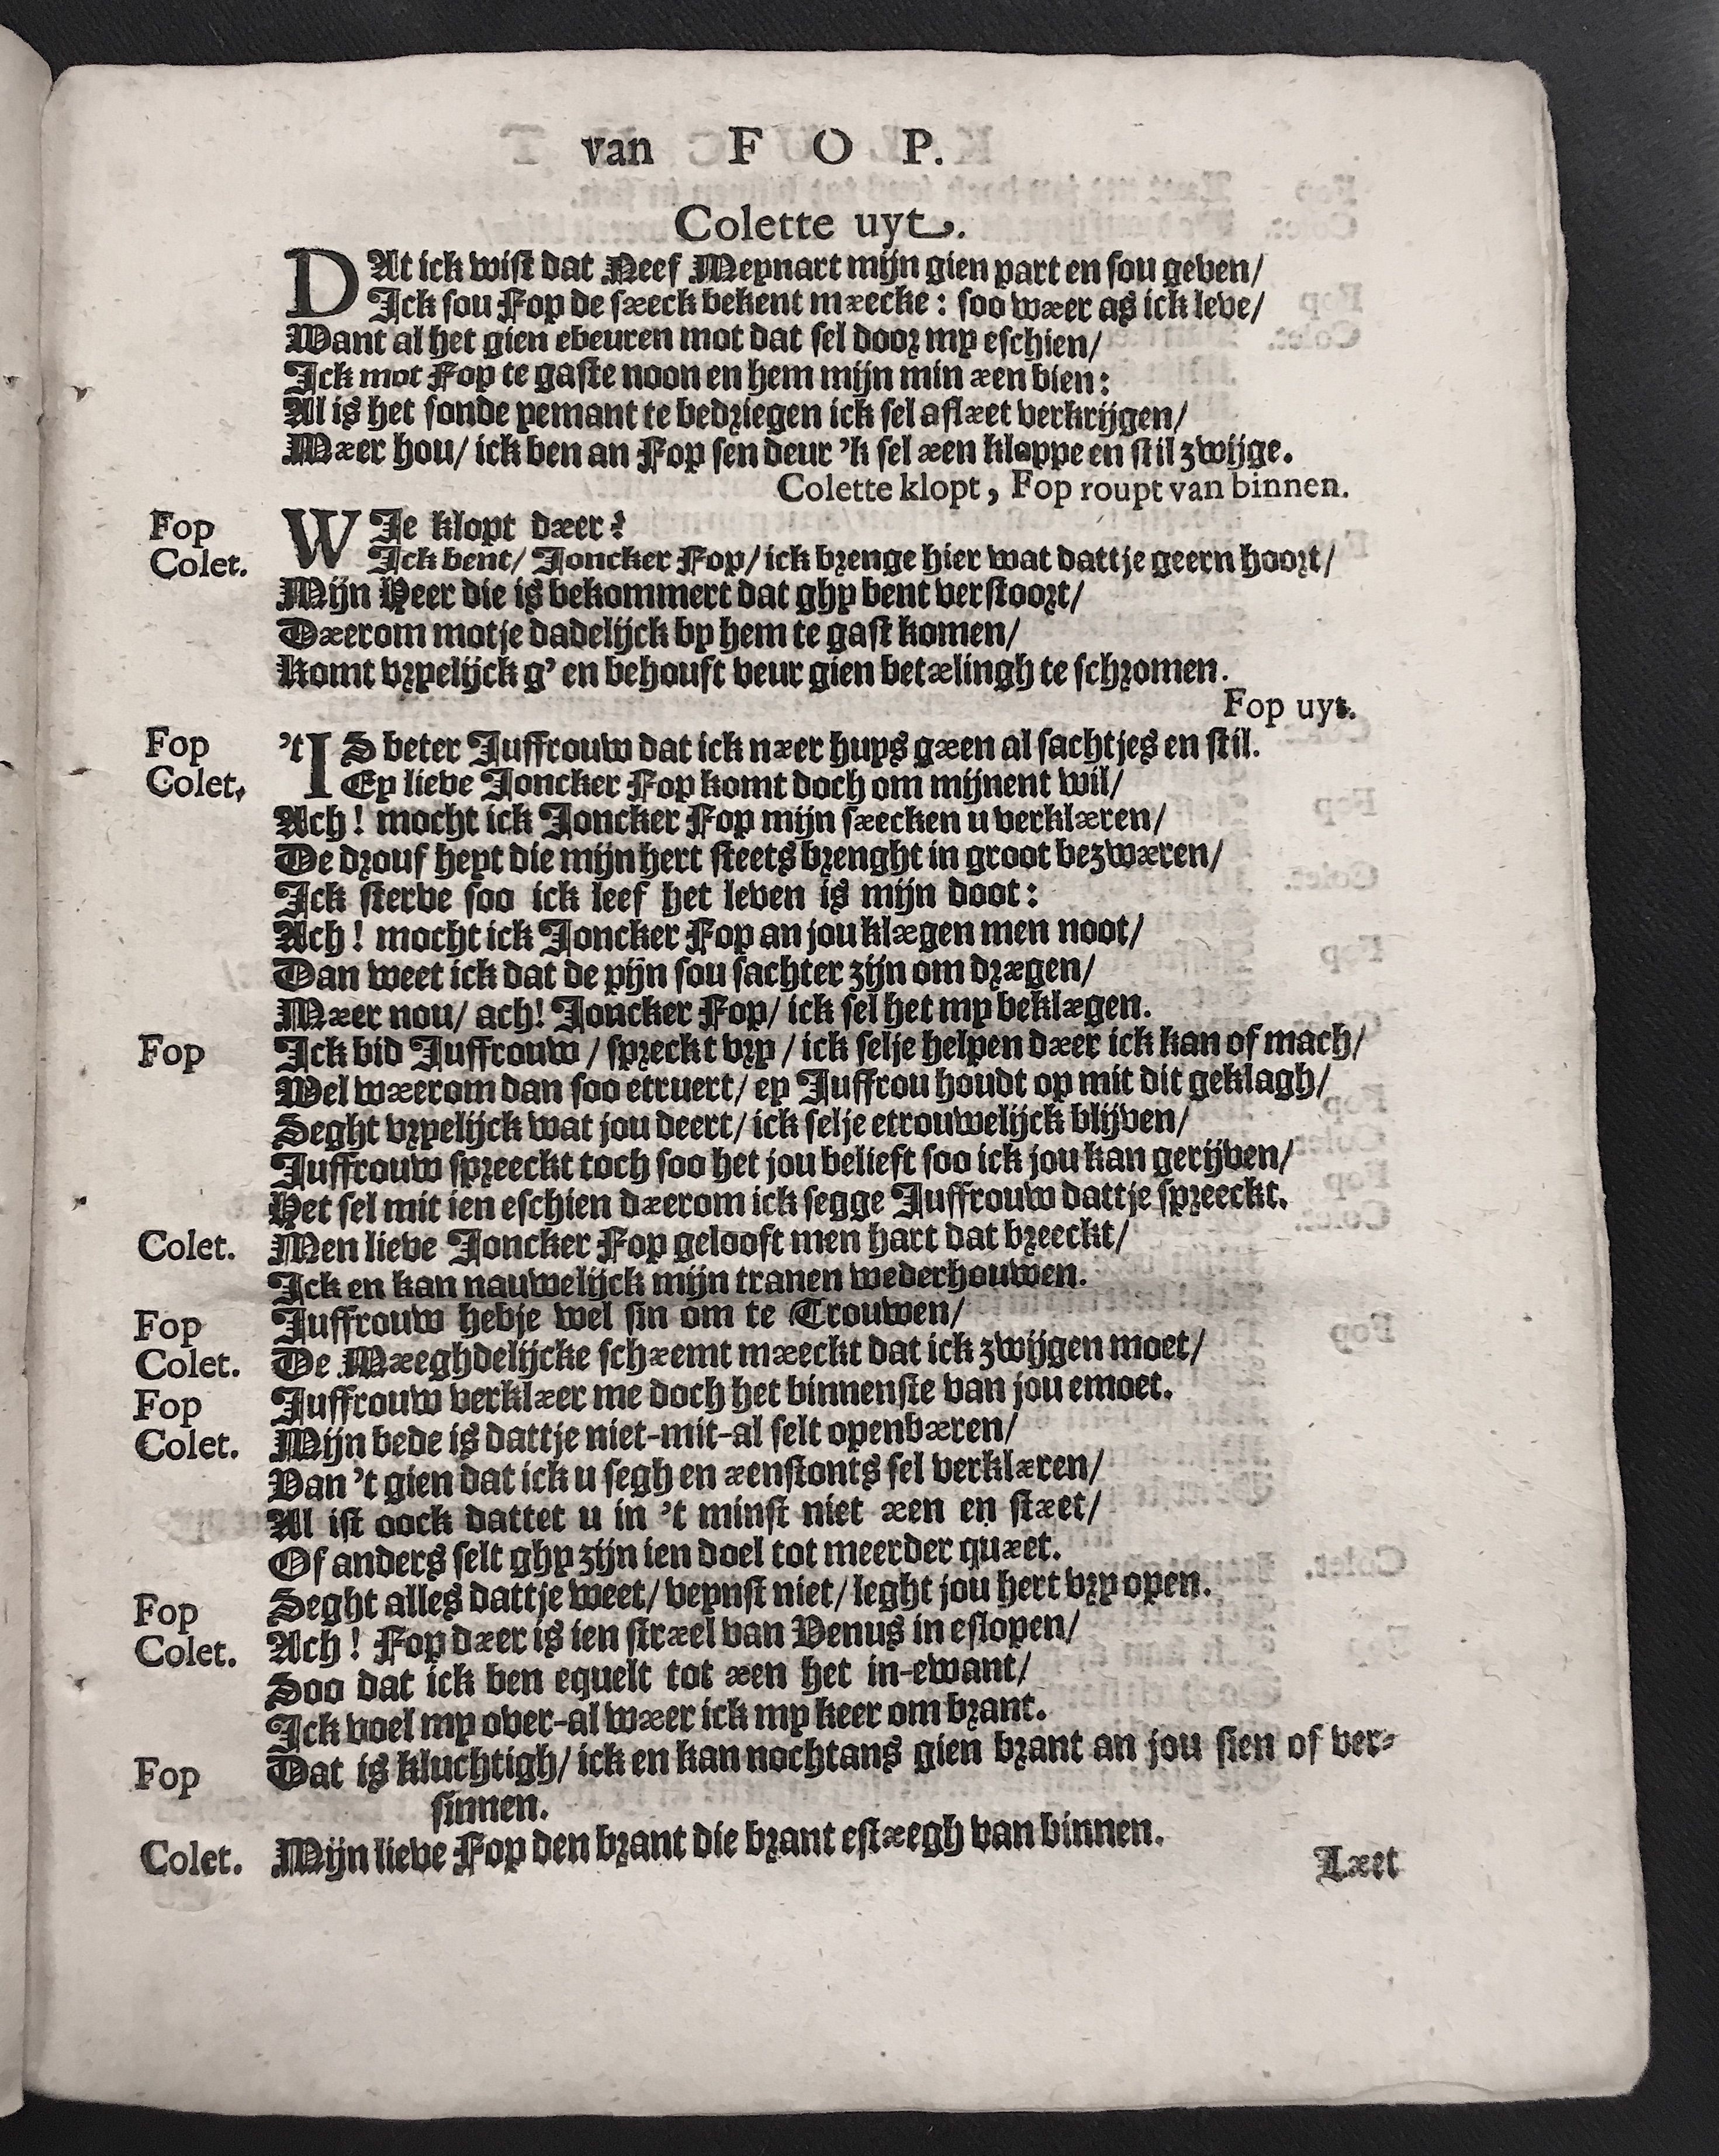 van F O P.
Colette uyt.
DAt ick wist dat Neef Meynart mijn gien part en sou geven/
Ick sou Fop de sæck bekent mæcke : soo wær as ick leve/
Want al het gien ebeuren mot dat sel door my eschien/
Ick mot Fop te gaste noon en hem mijn min æn bien:
Al is het sonde yemant te bedriegen ick sel aflæt verkrijgen/
Mær hou/ ick ben an Fop sen deur 'k sel æn kloppe en stil zwijge.
Colette klopt, Fop roupt van binnen.
Fop WIe klopt dær?
Colet. Ick bent/ Joncker Fop/ ick brenge hier wat dattje geern hoort/
Mijn Heer die is bekommert dat ghy bent verstoort/
Dærom motje dadelijck by hem te gast komen/
Komt vrpelijck g' en behouft veur gien betælingh te schromen.
Fop uyt.
Fop 'tIS beter Juffrouw dat ick nær huys gæn al sachtjes en stil.
Colet, Ey lieve Joncker Fop komt doch om mijnent wil/
Ach! mocht ick Joncker Fop mijn sæcken u verklæren/
De drouf heyt die mijn hert steets brenght in groot bezwæren/
Ick sterve soo ick leef het leven is mijn doot:
Ach! mocht ick Joncker Fop an jou klægen men noot/
Dan weet ick dat de pijn sou sachter zijn om drægen/
Mær nou/ ach! Joncker Fop/ ick sel het my beklægen.
Fop Ick bid Juffrouw/ spreckt vry/ ick selje helpen dær ick kan of mach/
Wel wærom dan soo etruert/ ey Juffrou houdt op mit dit geklagh/
Seght vrpelijck wat jou deert/ ick selje etrouwelijck blijven/
Juffrouw spreeckt toch soo het jou belieft soo ick jou kan gerijven/
Het sel mit ien eschien dærom ick segge Juffrouw dattje spreeckt.
Colet. Men lieve Joncker Fop gelooft men hart dat breeckt/
Ick en kan nauwelijck mijn tranen wederhouwen.
Fop Juffrouw hebje wel sin om te Trouwen/
Colet. De Mæghdelijcke schæmt mæckt dat ick zwijgen moet/
Fop Juffrouw verklær me doch het binnenste van jou emoet.
Colet. Mijn bede is dattje niet-mit-al selt openbæren/
Van 't gien dat ick u segh en ænstonts sel verklæren/
Al ist oock dattet u in 't minst niet æn en stæt/
Of anders selt ghy zijn ien doel tot meerder quæt.
Fop Seght alles dattje weet/ veynst niet/ leght jou hert vry open.
Colet. Ach! Fop dær is ien stræl van Venus in eslopen/
Soo dat ick ben equelt tot æn het in-ewant/
Ick voel my over-al wær ick my keer om brant.
Fop Dat is kluchtigh/ ick en kan nochtans gien brant an jou sien of ver-
sinnen.
Colet. Mijn lieve Fop den brant die brant estægh van binnen.
Læt